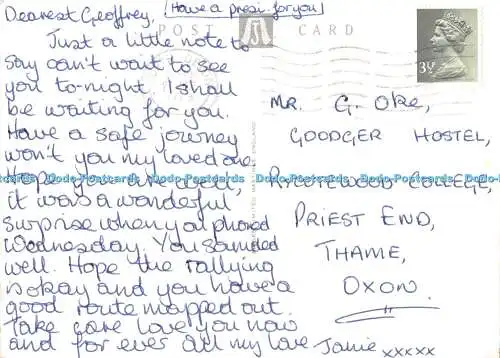 Dearest Geoffrey, (Have a presi. for you)
POST CARD
Just a little note to
say can't wait to see
you to-night I shall
be waiting for you.
Have a safe journey
won't you my loved one.
Hope you are okay,
it was a wonderful
surprise when you phoned
Wednesday. You sounded
well. Hope the rallying
is okay and you have a
good route mapped out.
Take care love you now
and for ever all my love Janie xxxxx
3½
Mr. G. Oke,
GOODGER HOSTEL,
RYCOTEWOOD COLLEGE,
PRIEST END,
THAME,
OXON.
Dodo-Postcards Dodo-Postcards Dodo-Postcards Dodo-Postcards Dodo-Postcards